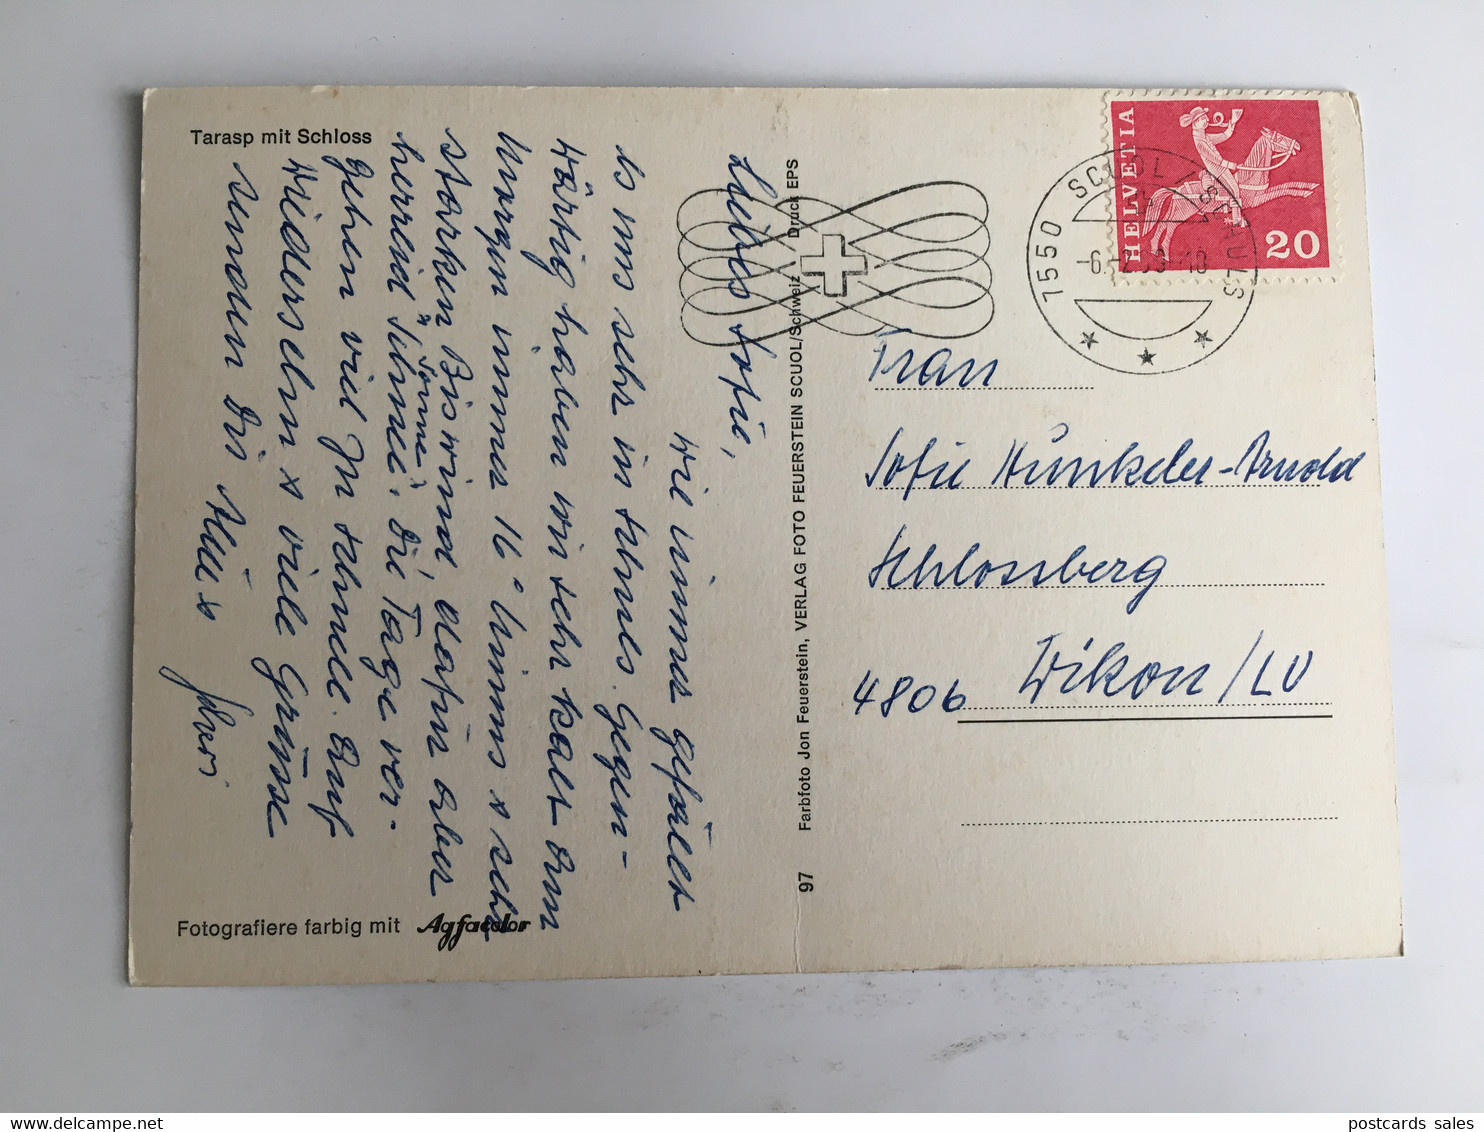 Tarasp mit Schloss
Liebes Sofie,
wie immer gefällt
es uns sehr in Schuls. Gegen-
wärtig haben wir sehr kalt am
Morgen immer 16° Minus & sehr
starken Biswind, dafür aber
herrlich Schnee & Sonne. Die Tage ver-
gehen viel zu schnell. Auf
Wiedersehn & viele Grüsse
senden Dir
Fotografiere farbig mit Agfacolor
97 Farbfoto Jon Feuerstein, VERLAG FOTO FEUERSTEIN SCUOL/Schweiz Druck EPS
HELVETIA
20
7550 SCUOL / SCHULS
Frau
Sofie Hunkeler-Arnold
Schlossberg
4806 Wikon/LU
postcards sales